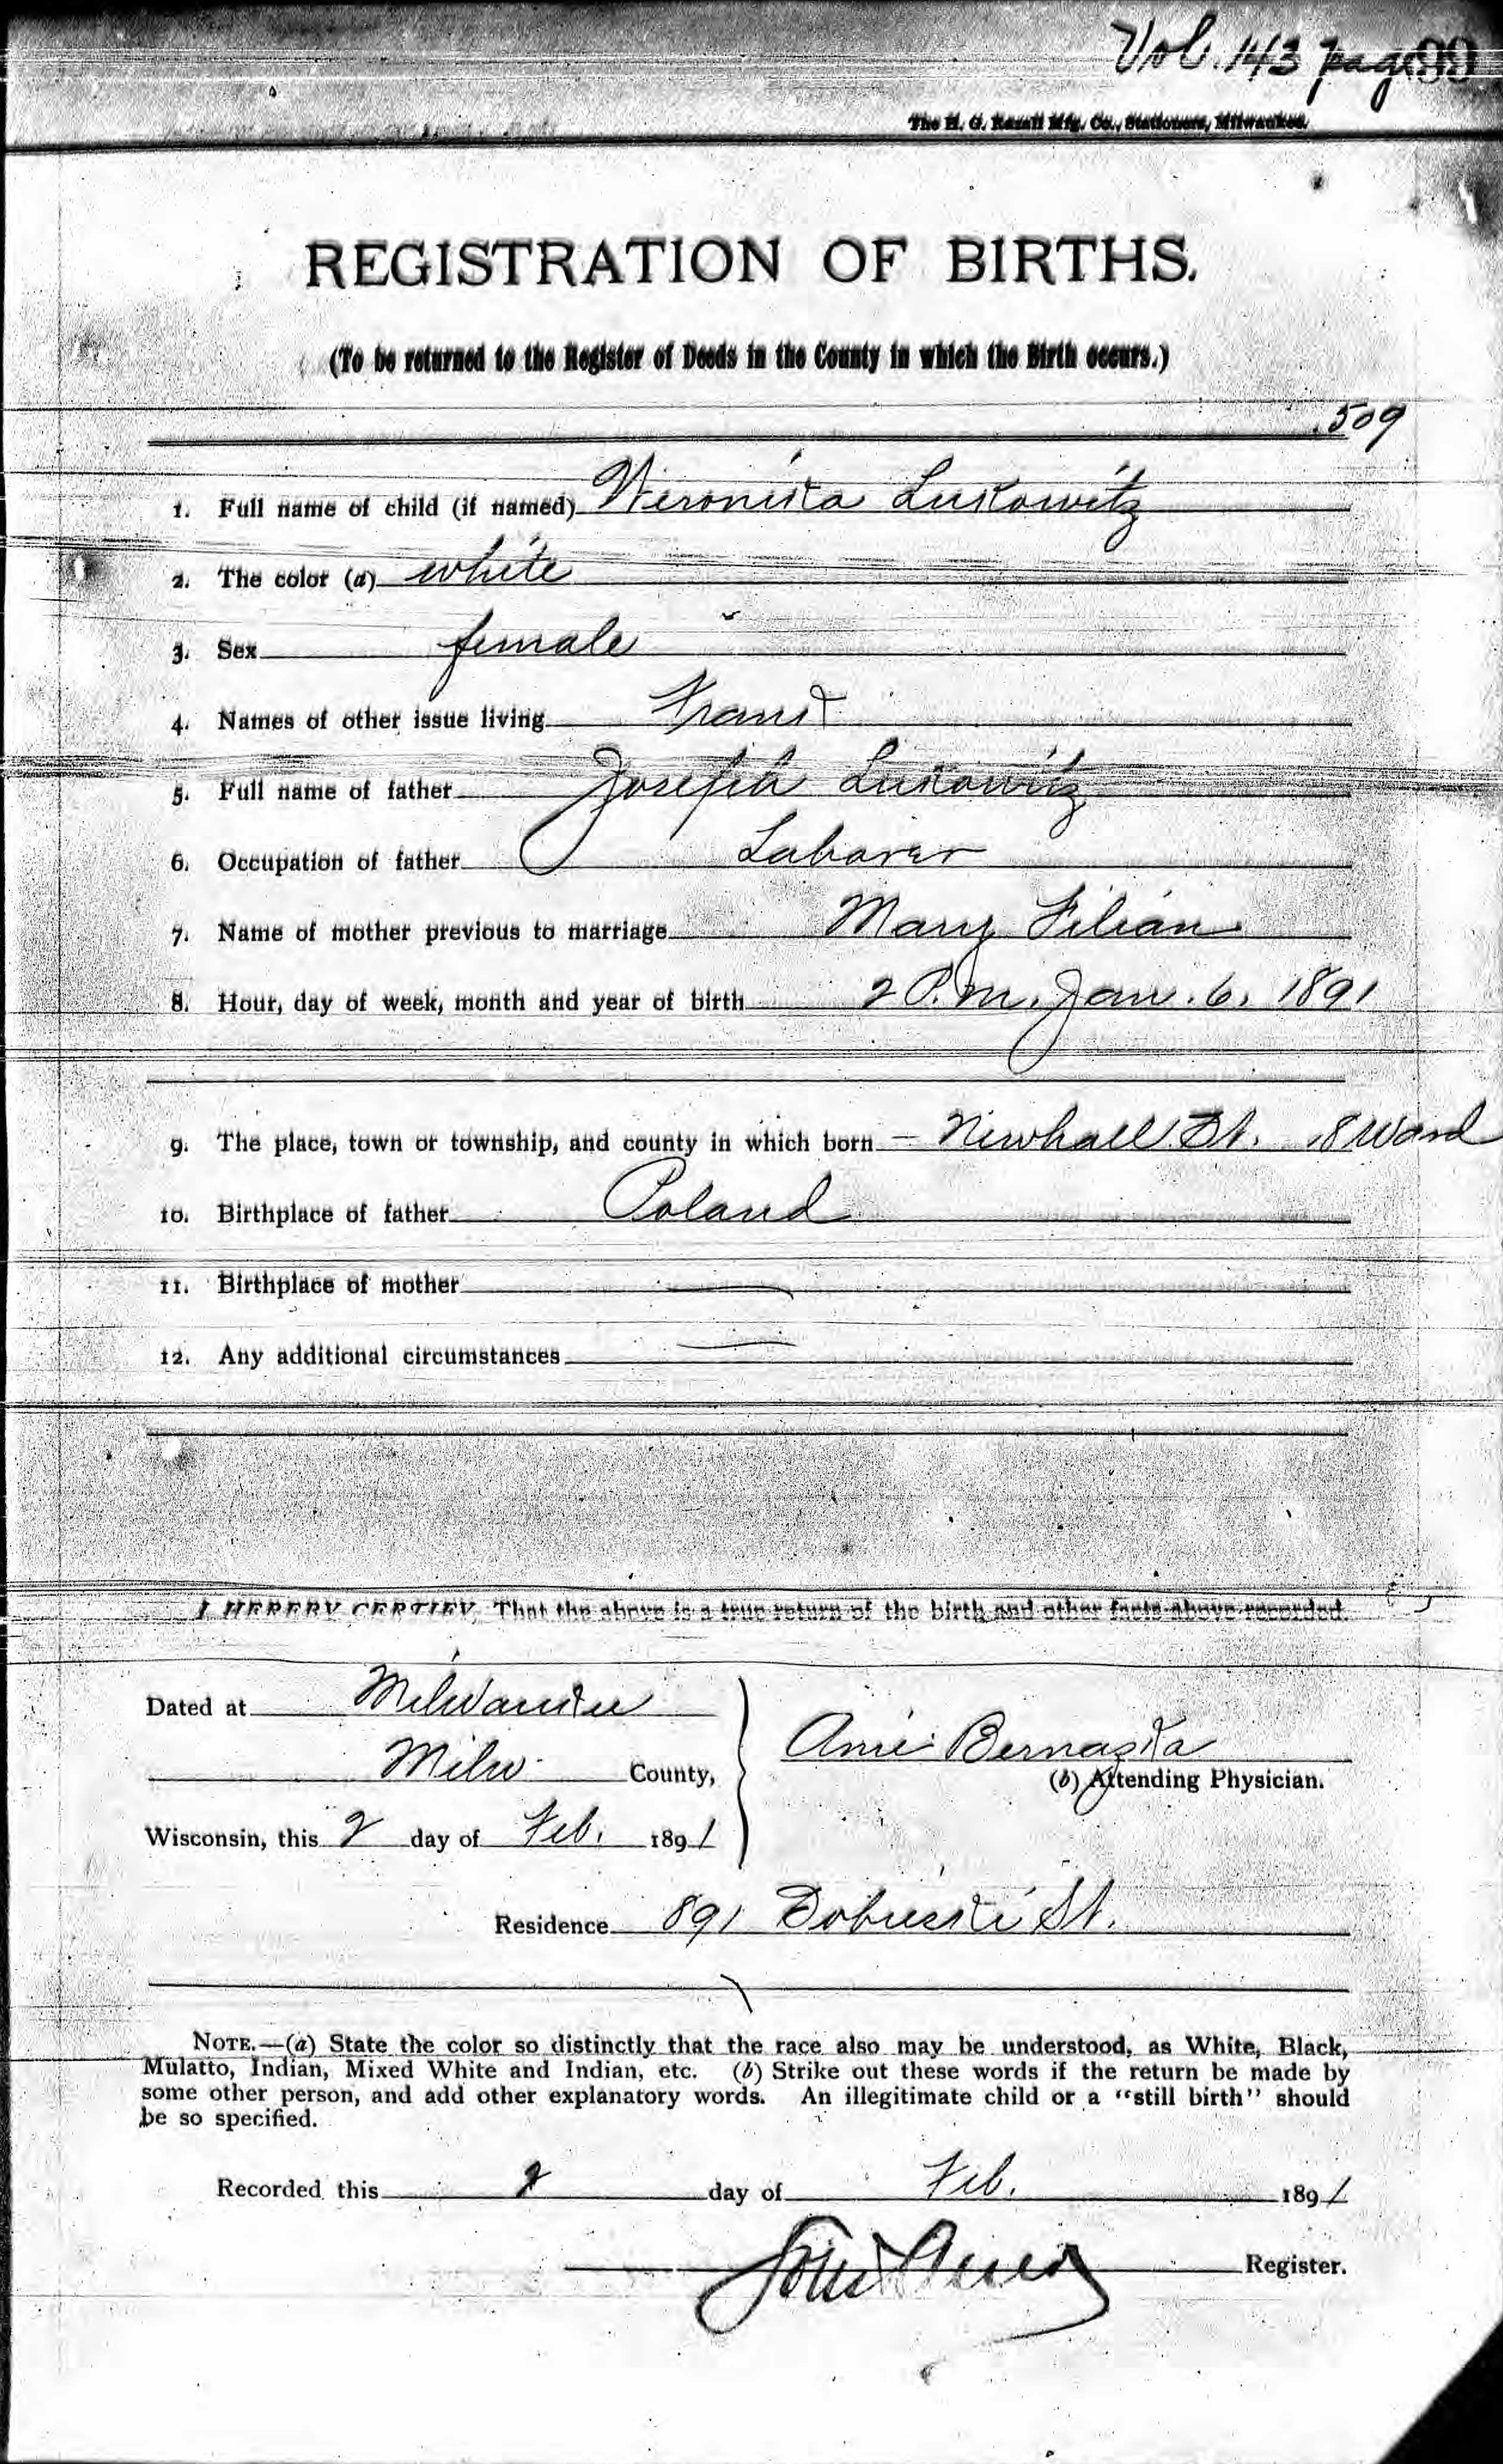 Vol. 143 page 99
The H. G. Razall Mfg. Co., Stationers, Milwaukee.
REGISTRATION OF BIRTHS.
(To be returned to the Register of Deeds in the County in which the Birth occurs.)
509
1. Full name of child (if named) Weronika Lukowitz
2. The color (a) white
3. Sex female
4. Names of other issue living Frank
5. Full name of father Joseph Lukowitz
6. Occupation of father Laborer
7. Name of mother previous to marriage Mary Filian
8. Hour, day of week, month and year of birth 2 P.m. Jan. 6, 1891
9. The place, town or township, and county in which born – Newhall St. 18 Ward
10. Birthplace of father Poland
11. Birthplace of mother
12. Any additional circumstances
I HEREBY CERTIFY, That the above is a true return of the birth and other facts above recorded.
Dated at Milwaukee
Milw. County,
Wisconsin, this 2 day of Feb. 1891
Bernaska
(b) Attending Physician.
Residence 891 St.
NOTE.—(a) State the color so distinctly that the race also may be understood, as White, Black,
Mulatto, Indian, Mixed White and Indian, etc. (b) Strike out these words if the return be made by
some other person, and add other explanatory words. An illegitimate child or a "still birth" should
be so specified.
Recorded this 2 day of Feb. 1891
Register.